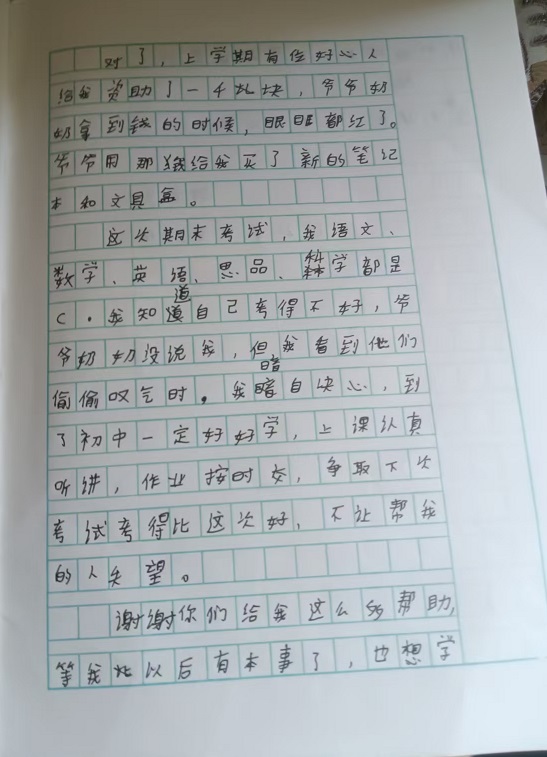 对了，上学期有位好心人
给我资助了一千块，爷爷奶
奶拿到钱的时候，眼眶都红了。
爷爷用那钱给我买了新的笔记
本和文具盒。
这次期末考试，我语文、
数学、英语、思品、科学都是
C。我知道自己考得不好，爷
爷奶奶没说我，但我看到他们
偷偷叹气时。我暗自决心，到
了初中一定好好学，上课认真
听讲，作业按时交，争取下次
考试考得比这次好，不让帮我
的人失望。
谢谢你们给我这么多帮助，
等我以后有本事了，也想学